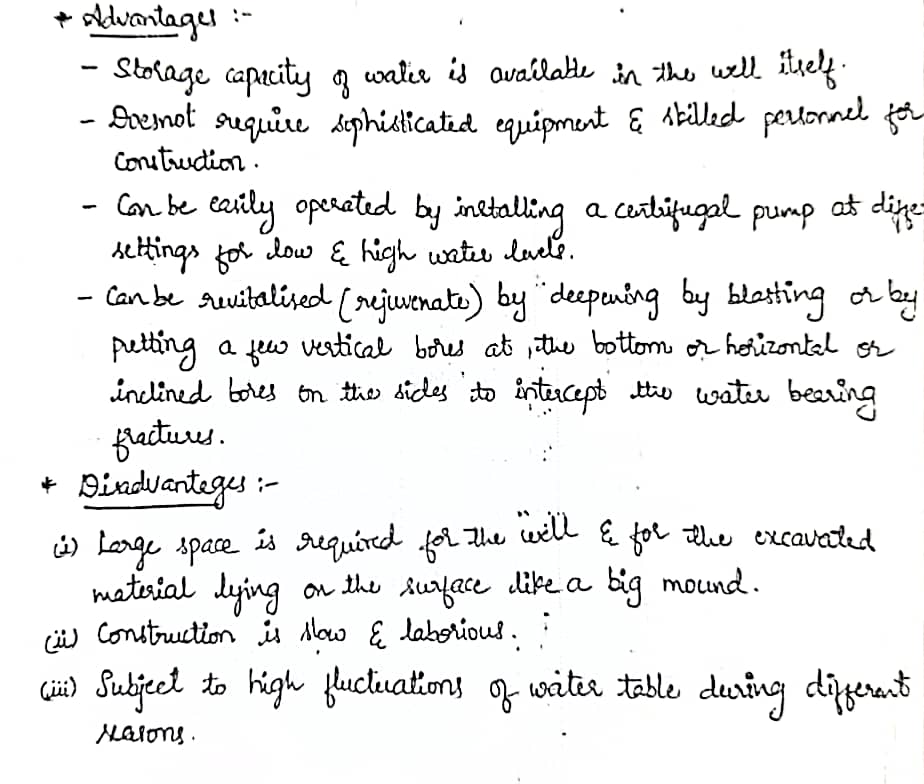 * Advantages :-
- Storage capacity of water is available in the well itself.
- Doesnot require sophisticated equipment & skilled personnel for
construction.
- Can be easily operated by installing a centrifugal pump at diffe
settings for low & high water levels.
- Can be revitalised (rejuvenate) by deepening by blasting or by
putting a few vertical bores at the bottom or horizontal or
inclined bores on the sides to intercept the water bearing
fractures.
* Disadvanteges :-
(i) Large space is required for the well & for the excavated
material lying on the surface like a big mound.
(ii) Construction is slow & laborious.
(iii) Subject to high fluctuations of water table during different
seasons.